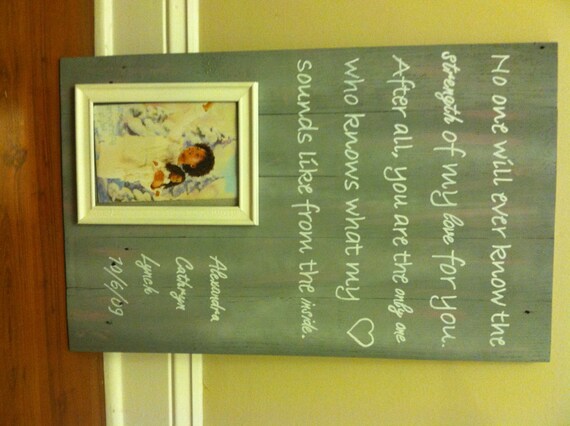 No one will ever know the
strength of my love for you.
After all, you are the only one
who knows what my ♡
sounds like from the inside.
Alexandra
Cathryn
Lynch
10/6/09